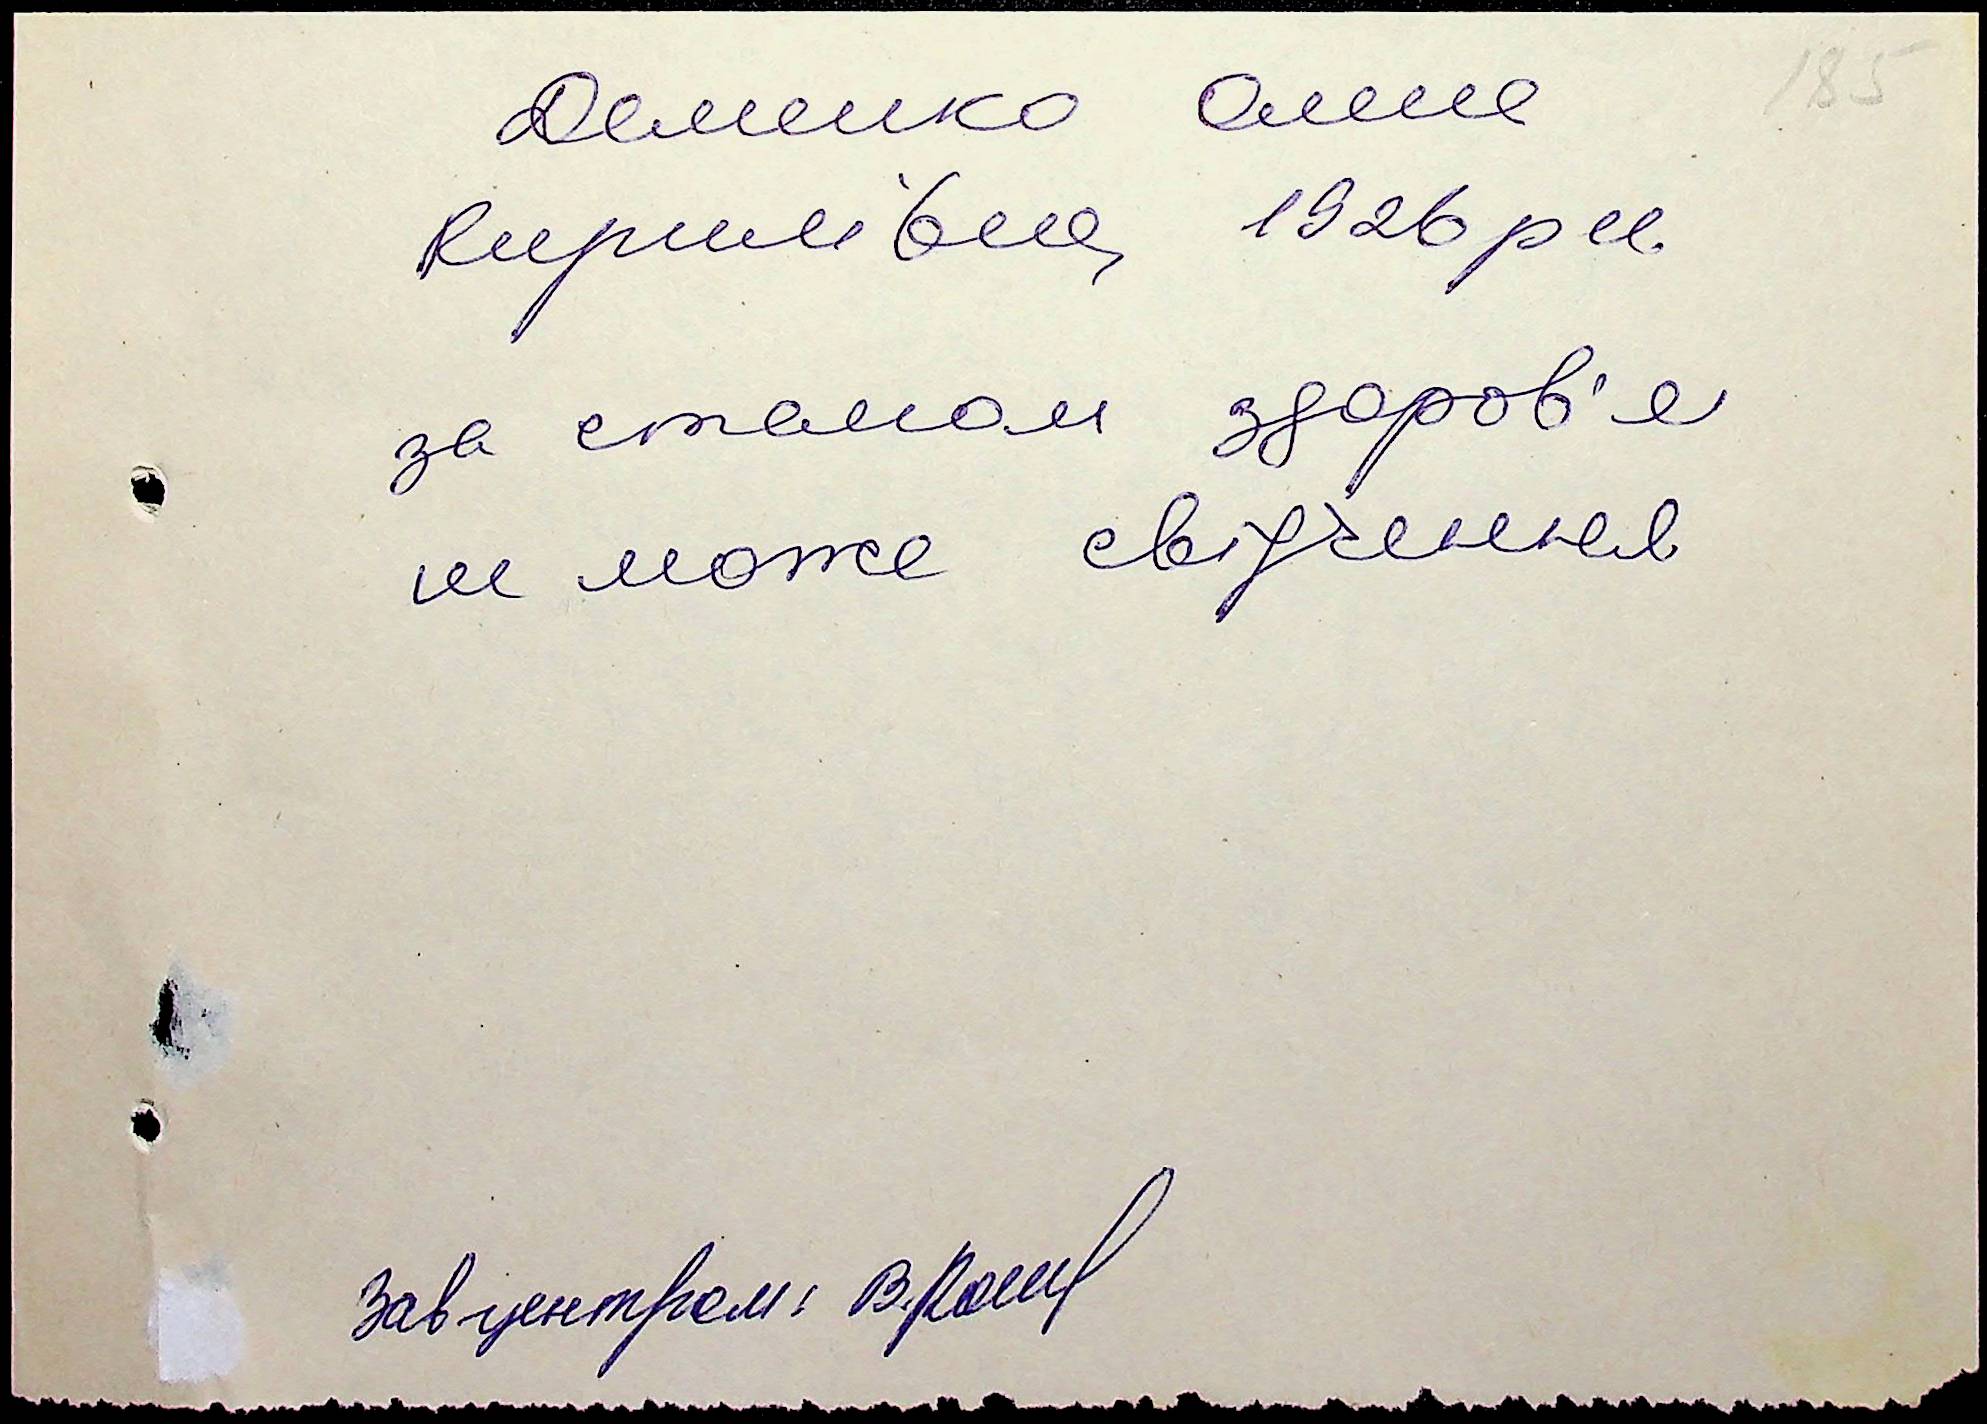 185
Деменко Олена
Кирилівна, 1926 р н.
за станом здоров'я
не може свідчення
Зав центром: В.